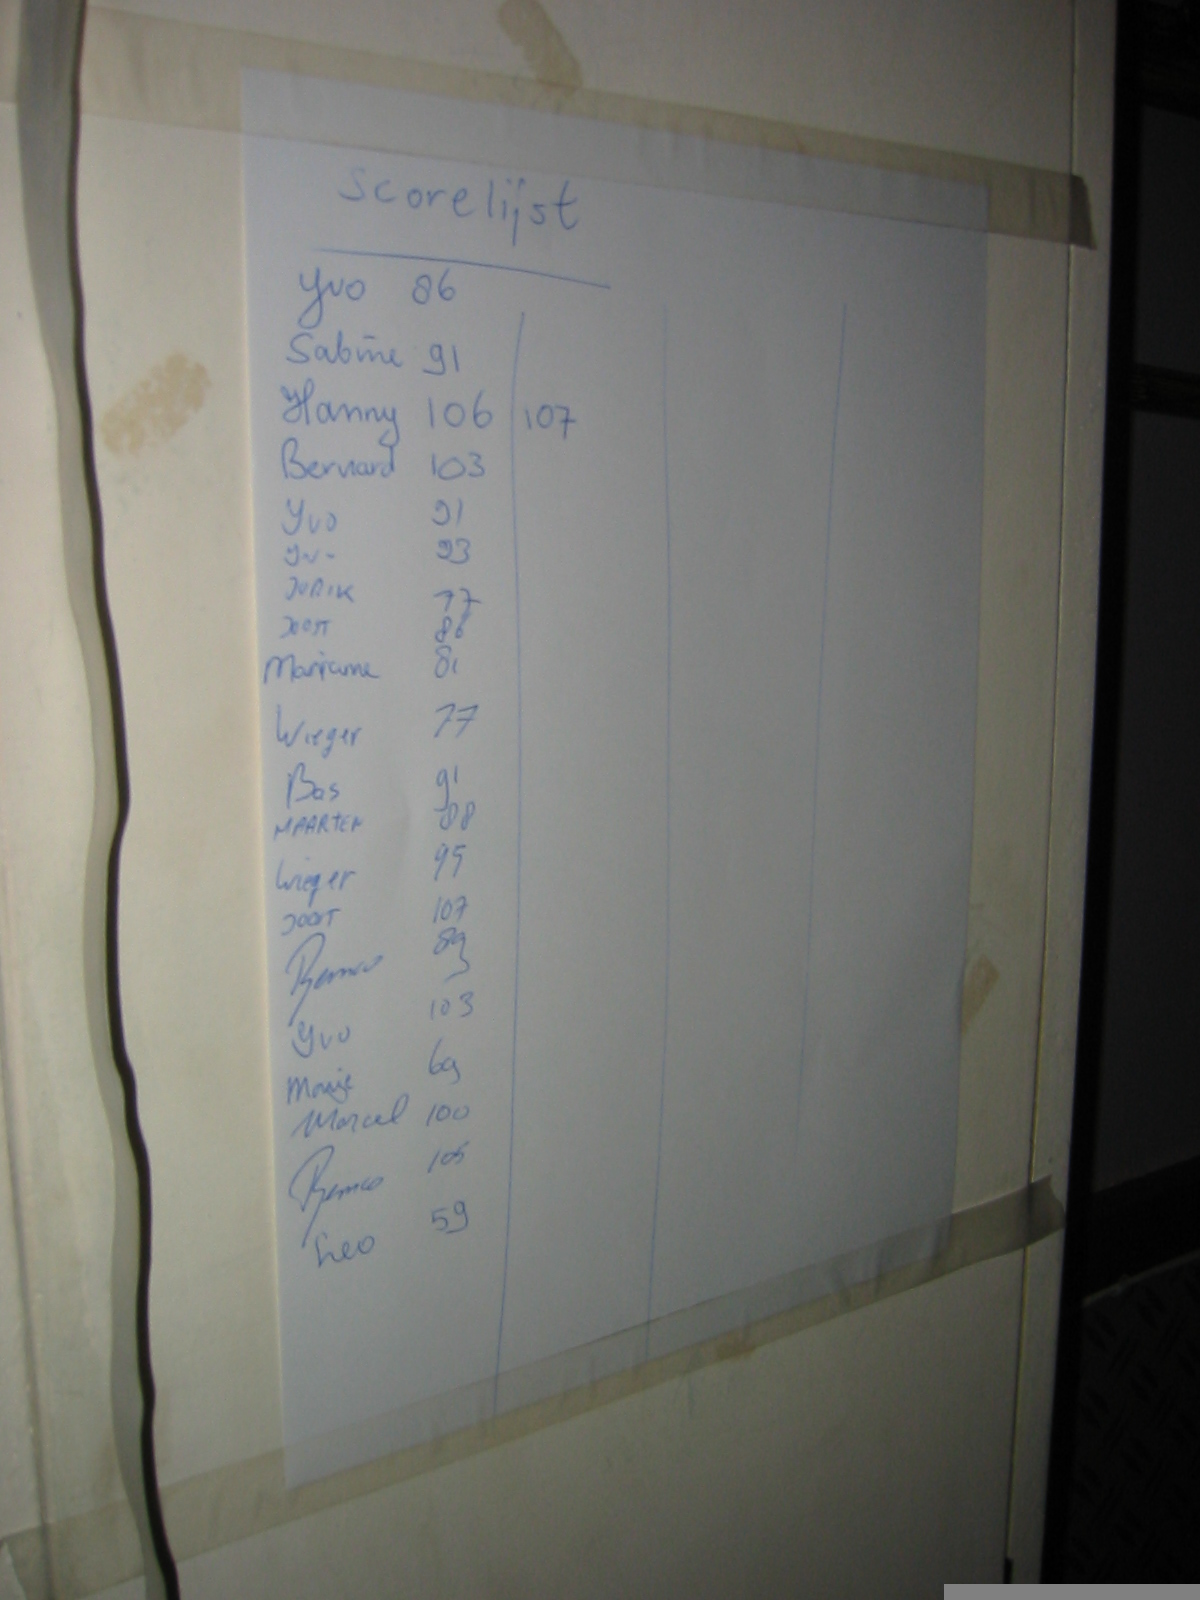 Scorelijst
Yvo 86
Sabine 91
Hanny 106 107
Bernard 103
Yvo 91
Yvo 93
JURIK 77
JOOST 86
Marianne 81
Wieger 77
Bas 91
MAARTEN 88
Wieger 95
JOOST 107
Remco 89
Yvo 103
69
Marcel 100
Remco 105
Leo 59